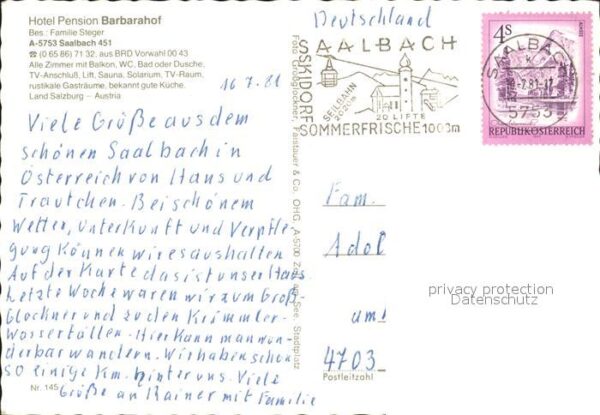 Hotel Pension Barbarahof
Bes.: Familie Steger
A-5753 Saalbach 451
☎ (0 65 86) 71 32, aus BRD Vorwahl 00 43
Alle Zimmer mit Balkon, WC, Bad oder Dusche,
TV-Anschluß, Lift, Sauna, Solarium, TV-Raum,
rustikale Gasträume, bekannt gute Küche.
Land Salzburg – Austria
16.7.81
Viele Grüße aus dem
schönen Saalbach in
Österreich von Hans und
Trautchen. Bei schönem
Wetter, Unterkunft und Verpfle-
gung können wir es aushalten
Auf der Karte das ist unser Haus
Letzte Woche waren wir zum Groß-
Glockner und zu den Krimmler-
Wasserfällen. Hier kann man wun-
derbar wandern. Wir haben schon
so einige Km. hinter uns. Viele
Grüße an Rainer mit Familie
Nr. 145
Foto: Großglockner, Faistauer & Co. OHG, A-5700 Zell am See, Stadtplatz
Deutschland
SAALBACH
SKIDORF
SEILBAHN
2020m
20 LIFTE
SOMMERFRISCHE 1003m
SAALBACH
-7.81-17
5753
4S
REPUBLIK ÖSTERREICH
Fam.
Adol
am!
4703
Postleitzahl
privacy protection
Datenschutz